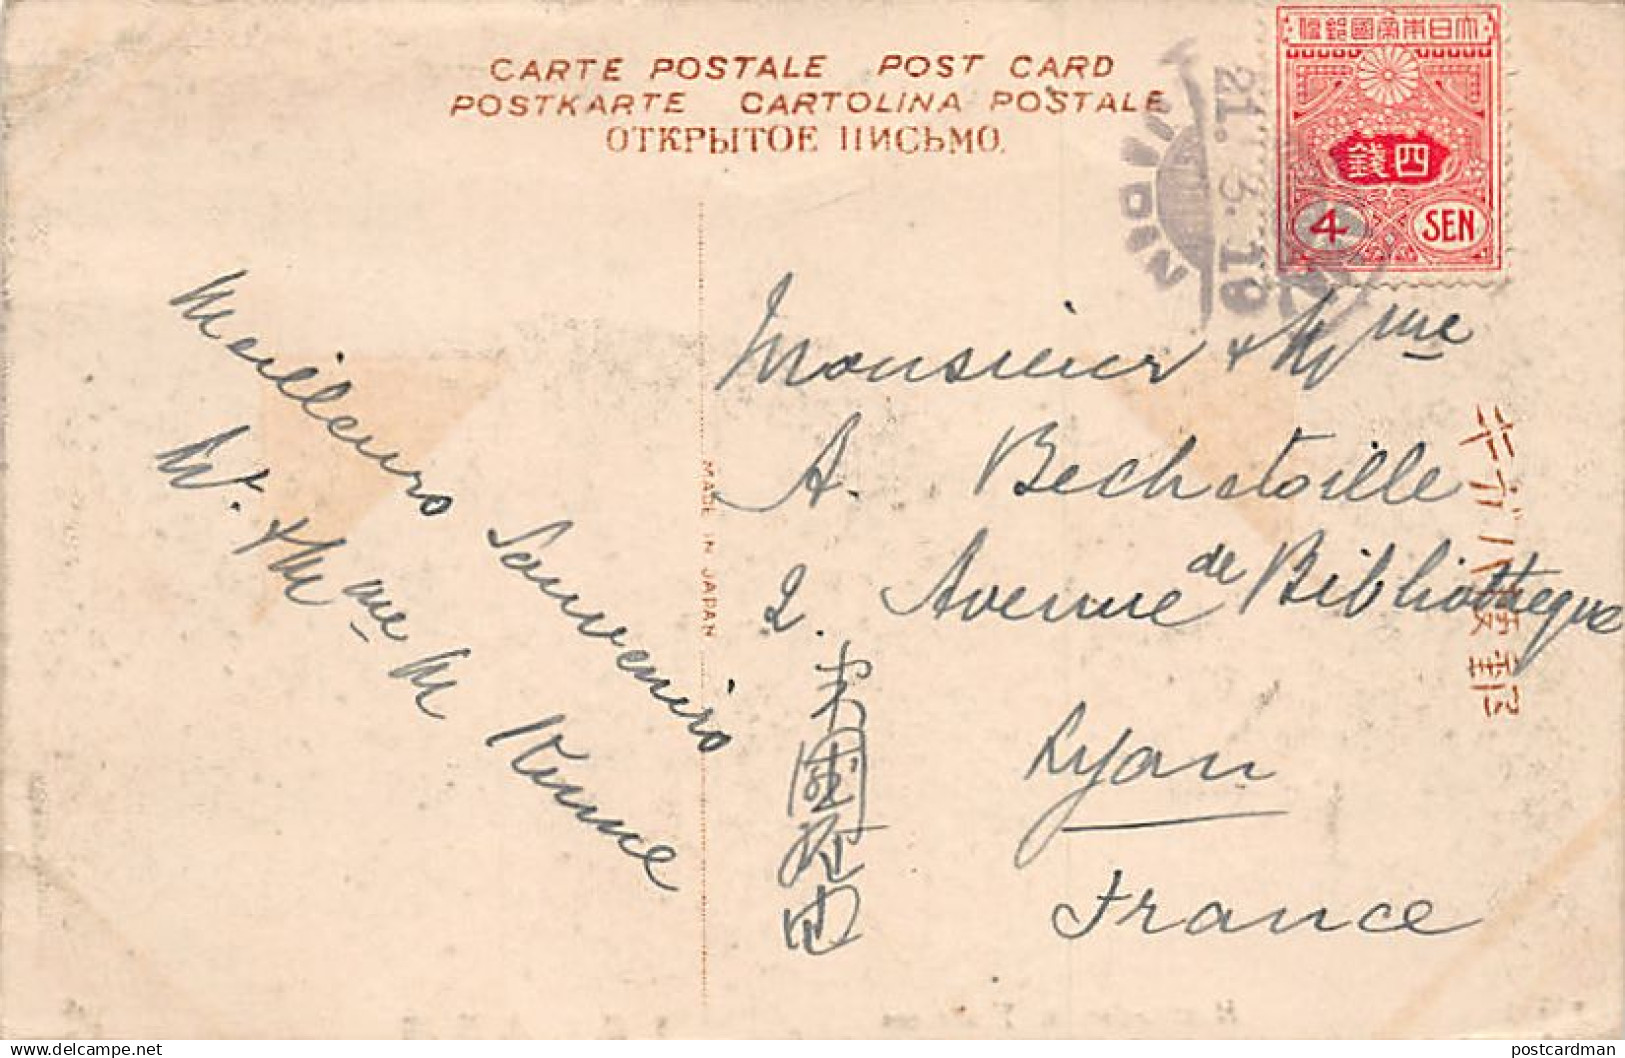 CARTE POSTALE POST CARD
POSTKARTE CARTOLINA POSTALE
ОТКРЫТОЕ ПИСЬМО.
大日本帝國郵便
四錢
4 SEN
NIPPON
21. 3. 19
Meilleurs Souvenirs
Mr. & Mme M
Monsieur & Mme
A. Bechetoille
2. Avenue de Bibliothèque
Lyon
France
MADE IN JAPAN
postcardman